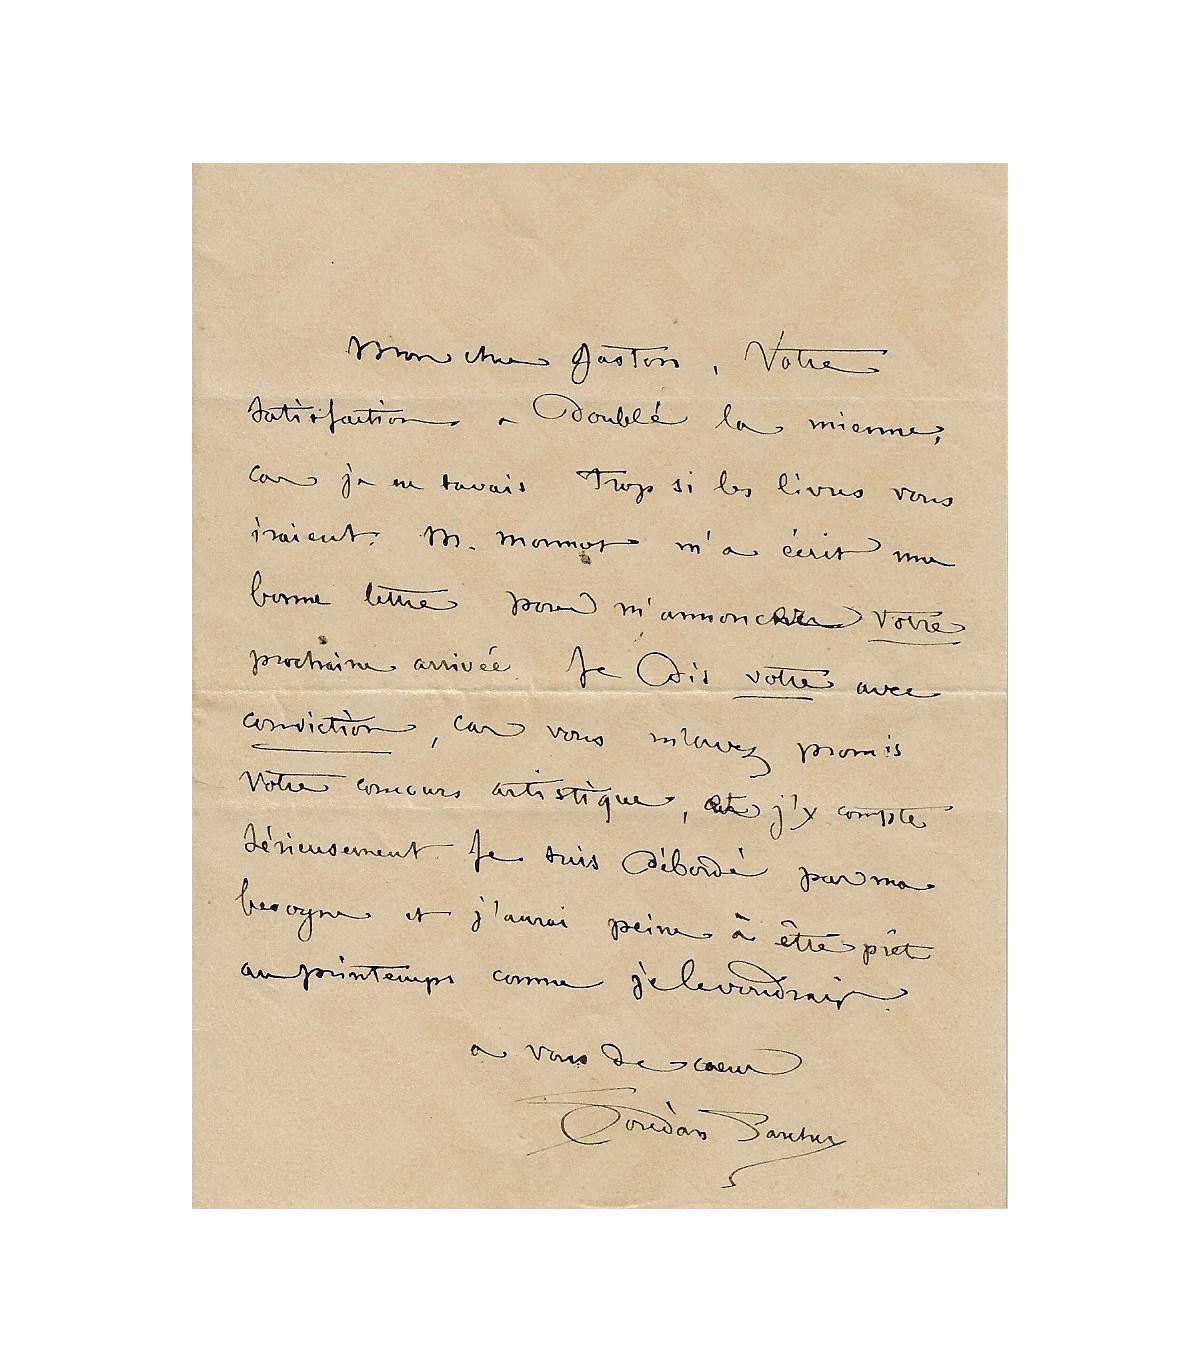 Mon cher Gaston, Votre
satisfaction a doublé la mienne,
car je ne savais Trop si les livres vous
iraient. M. Monnot m'a écrit une
bonne lettre pour m'annoncer votre
prochaine arrivée. Je dis votre avec
conviction, car vous m'avez promis
votre concours artistique, et j'y compte
sérieusement. Je suis débordé par ma
besogne et j'aurai peine à être prêt
au printemps comme je le voudrais.
a vous de cœur